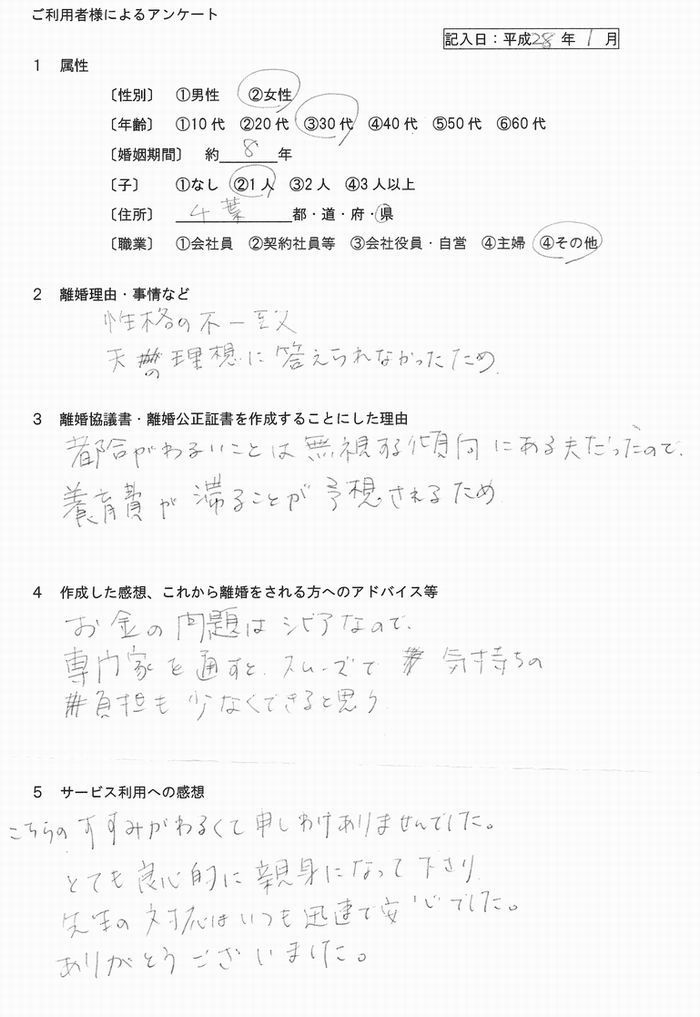 ご利用者様によるアンケート
記入日：平成28年 1月
1 属性
〔性別〕 ①男性 ②女性
〔年齢〕 ①10代 ②20代 ③30代 ④40代 ⑤50代 ⑥60代
〔婚姻期間〕 約 8 年
〔子〕 ①なし ②1人 ③2人 ④3人以上
〔住所〕 千葉 都・道・府・県
〔職業〕 ①会社員 ②契約社員等 ③会社役員・自営 ④主婦 ④その他
2 離婚理由・事情など
性格の不一致
夫の理想に答えられなかったため
3 離婚協議書・離婚公正証書を作成することにした理由
都合がわるいことは無視する傾向にある夫だったので、
養育費が滞ることが予想されるため
4 作成した感想、これから離婚をされる方へのアドバイス等
お金の問題はシビアなので、
専門家を通すと、スムーズで 気持ちの
負担も少なくできると思う
5 サービス利用への感想
こちらのすすみがわるくて申しわけありませんでした。
とても良心的に親身になって下さり
先生の対応はいつも迅速で安心でした。
ありがとうございました。